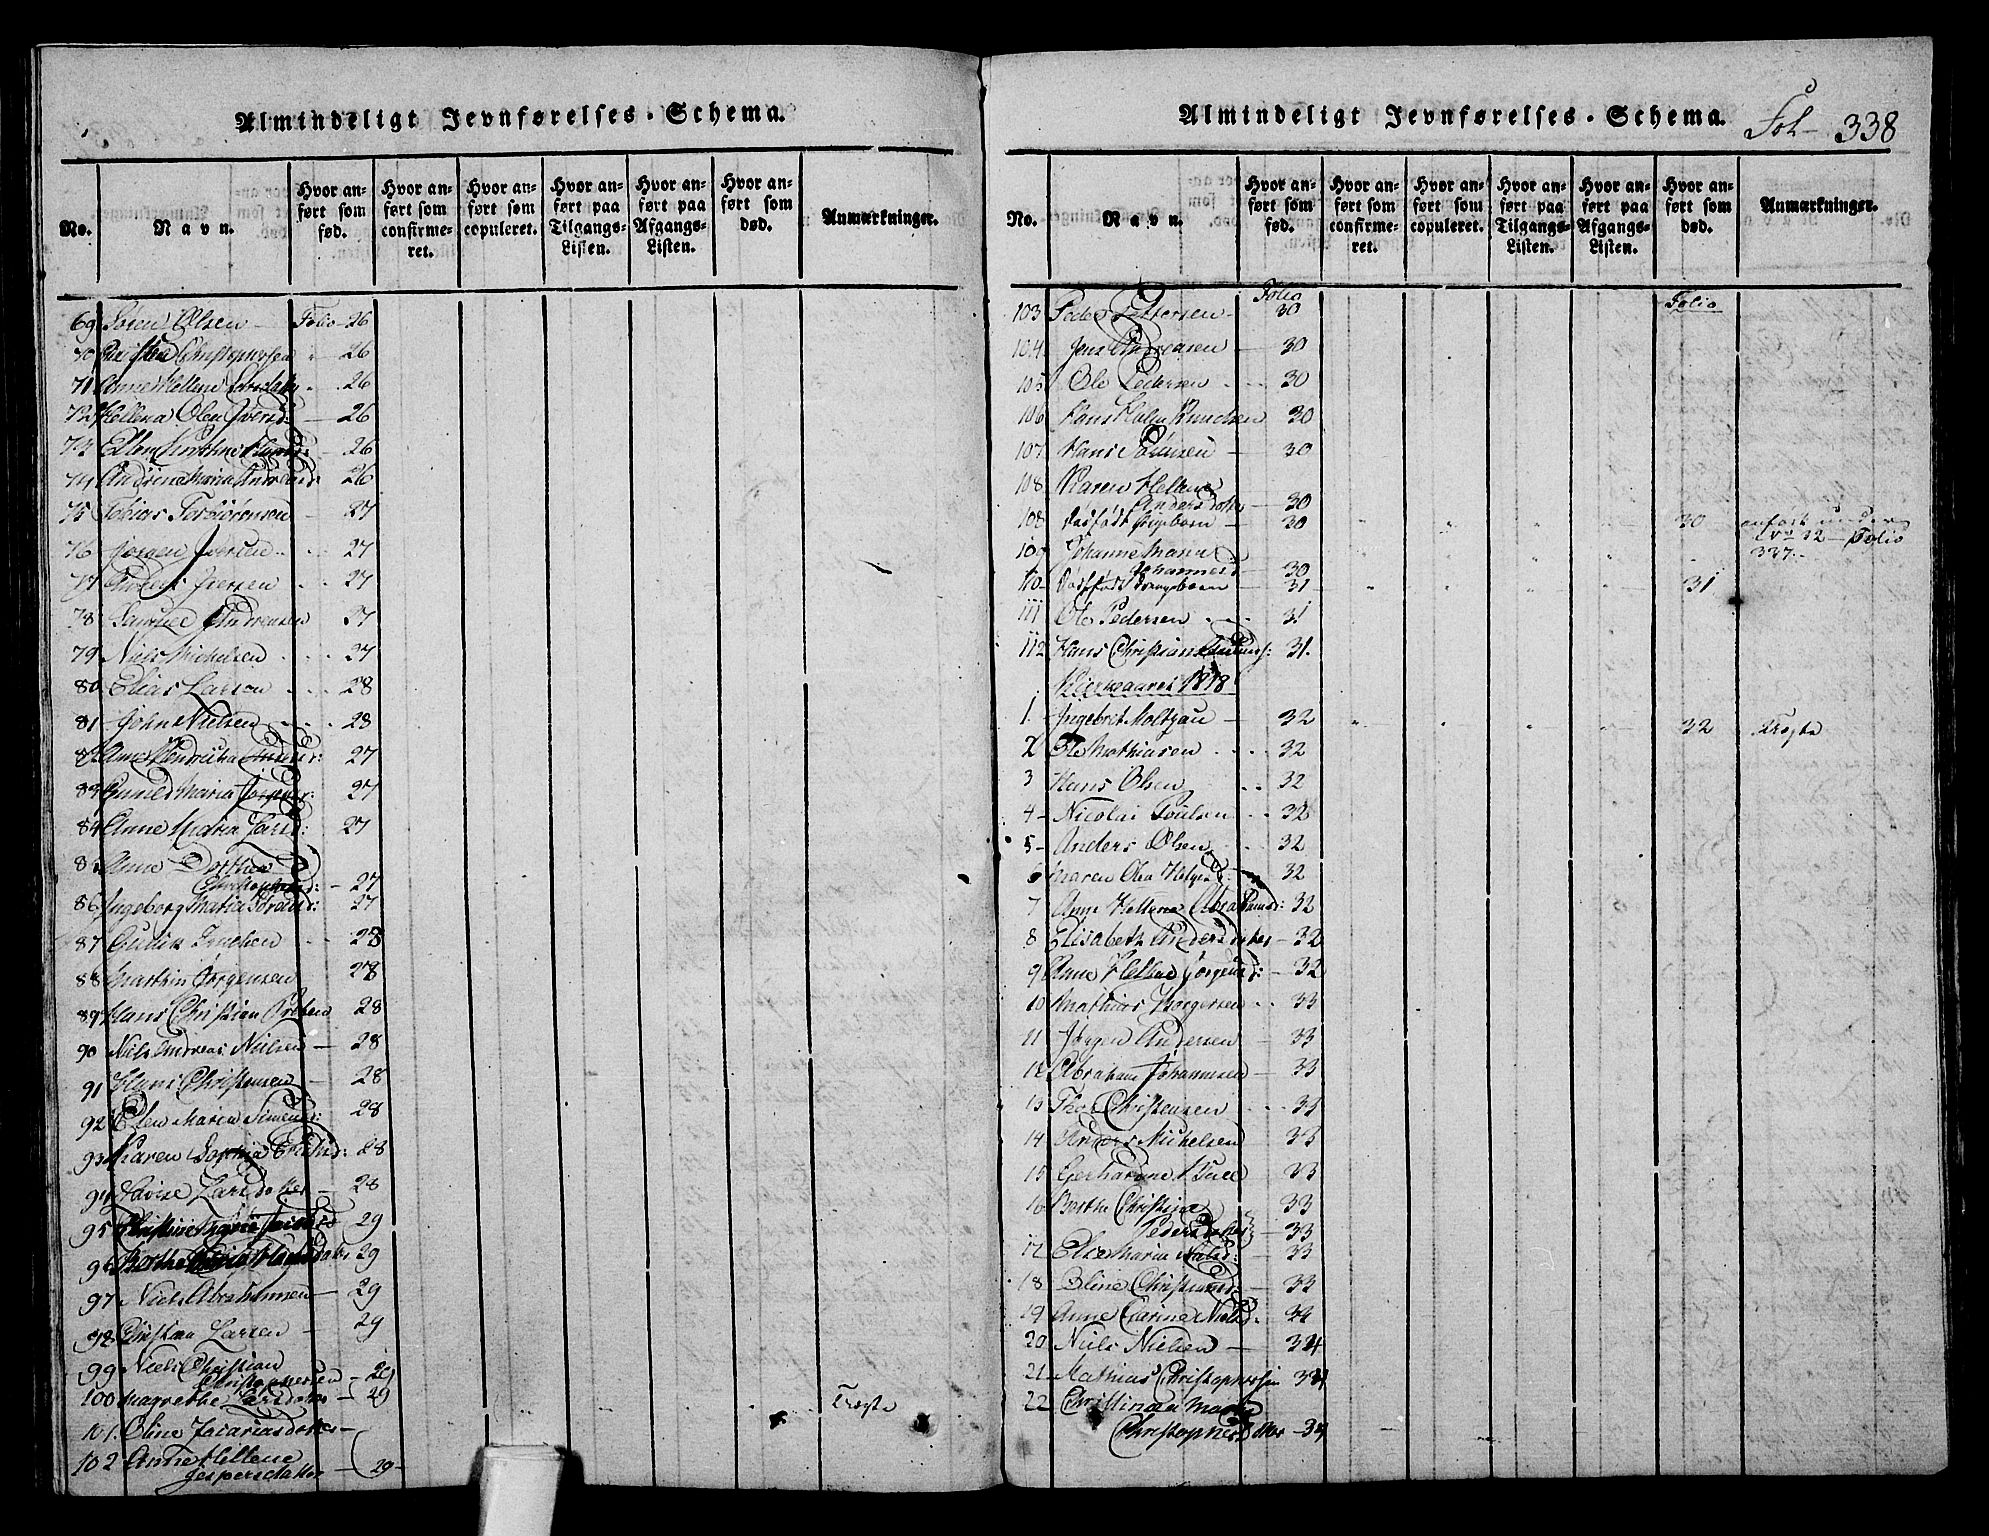 Almindeligt Jevnførelses-Schema.
No.
Navn.
Hvor anført som født.
Hvor anført som confirmeret.
Hvor anført som copuleret.
Hvor anført paa Tilgangs-Listen.
Hvor anført paa Afgangs-Listen.
Hvor anført som død.
Anmærkninger.
69 Søren Olsen — Folio 26
70 Christen Christophersen " 26
71 Anne Hellene " 26
72 Hellena Olea Iversd: — 26
73 Ellen 26
74 Andrine Maria 26
75 Tobias Torbiörensen — 27
76 Jørgen Iversen 27
77 27
78 Samuel Andreasen 27
79 Niels Michelsen 27
80 Elias Larsen 28
81 John Nielsen 28
82 Anne Hendricha 27
83 Gunild Maria 27
84 Anne Maria Larsd: 27
85 Anne Dorthea
Christophersd: — 27
86 Ingeborg Maria Sörensd: 27
87 28
88 Matthis Jørgensen 28
89 Hans Christian 28
90 Niels Andreas Nielsen — 28
91 Hans Christensen — 28
92 Elen Maren Simensd: 28
93 Karen Sophia 28
94 Lovise Larsdatter — 28
95 29
96 Berthe Maria 29
97 Niels Abrahamsen — 29
98 Christian Larsen — 29
99 Niels Christian
Christophersen — 29
100 Margrethe Larsdatter — 29 Trøgte
101. Oline Zacariasdatter —
102 Anne Hellene
Jespersdatter — 29 —
Almindeligt Jevnførelses-Schema. Fol — 338
No.
Navn.
Hvor anført som født.
Hvor anført som confirmeret.
Hvor anført som copuleret.
Hvor anført paa Tilgangs-Listen.
Hvor anført paa Afgangs-Listen.
Hvor anført som død.
Anmærkninger.
Folio Folio
103 Peder Pettersen — 30
104 Jens Andreasen — 30
105 Ole Pedersen 30
106 Hans Holm Knudsen 30
107 Hans 30
108 Karen Hellene
Andersdotter — 30
108 Dødfødt Pigebarn — 30 " " " " 30 anført under
No 32 — Folio
337.
109 Johanne Maria
Johannesd: 30
110 — Dødfødt Drengebarn — 31 " " " " 31
111 Ole Pedersen 31
112 Hans Christian 31.
Kierkeaaret 1818
1. Ingebret Moltzau — 32 " " " " 32 Trøgte
2 Ole Mathiasen 32
3 Hans Olsen 32
4 — Nicolai Poulsen 32
5 — Anders Olsen 32
6 Maren Olea Helgesd: 32
7 Anne Hellene Abrahamsd: 32
8 Elisabeth Andersdatter — 32
9 Anne Hellene Jørgensd: — 32
10 Mathias Borgersen 33
11 Jörgen Andersen 33
12 Abraham Johannesen — 33
13 Thor Christensen 33
14 Anders Michelsen 33
15 33
16 Berthe Christina 33
Pedersdatter — 33
17 Else Maria Nielsd: 33
18 Oline Christensd: 33
19 Anne Carine Nielsd: 34
20 Niels Nielsen — 34
21 Mathias Christophersen 34
22 Christinaa Maria
Christophersdtter — 34